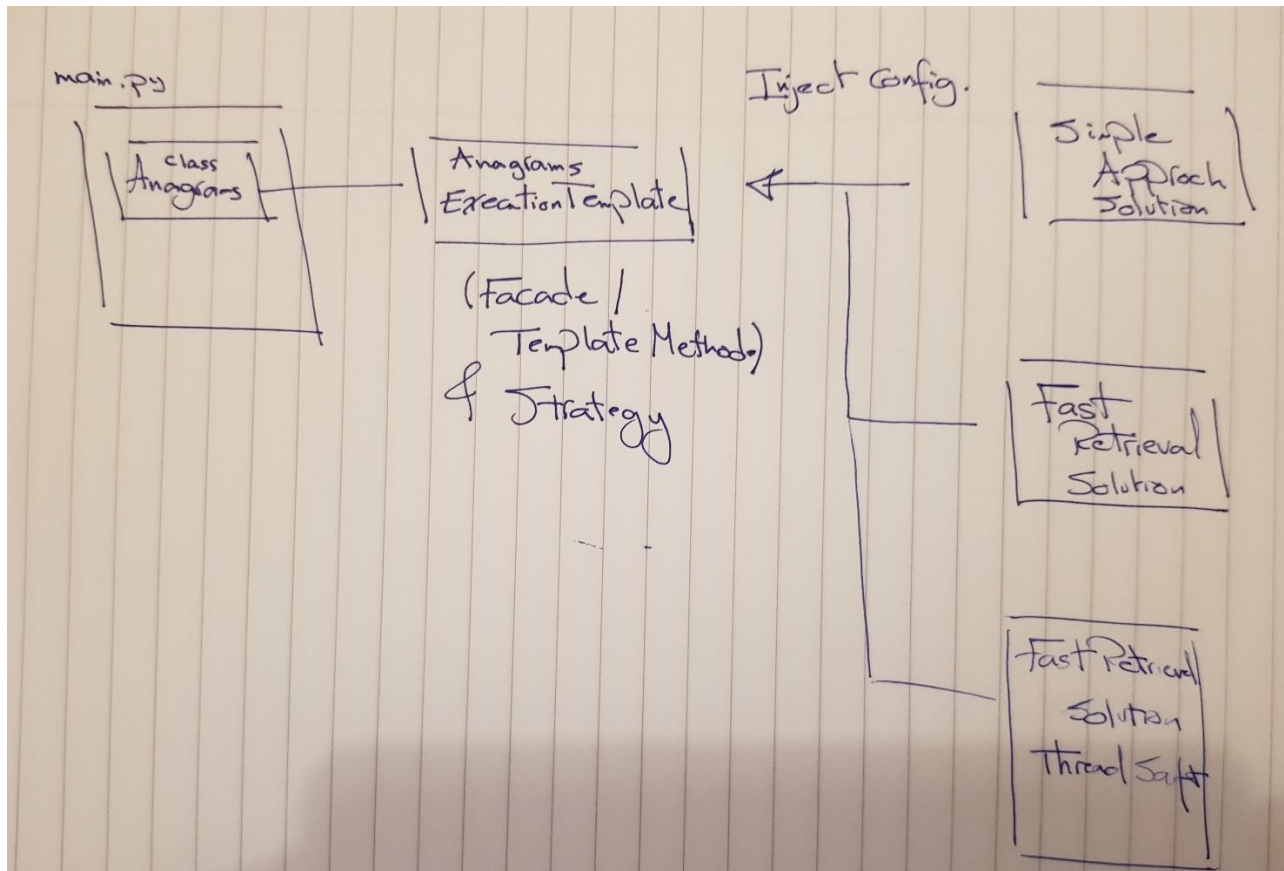 main.py
class
Anagrams
Anagrams
ExecutionTemplate
(Facade /
Template Method.)
& Strategy
Inject Config.
Simple
Approch
Solution
Fast
Retrieval
Solution
Fast Retrieval
Solution
Thread